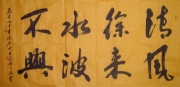 清風
徐来
水波
不興